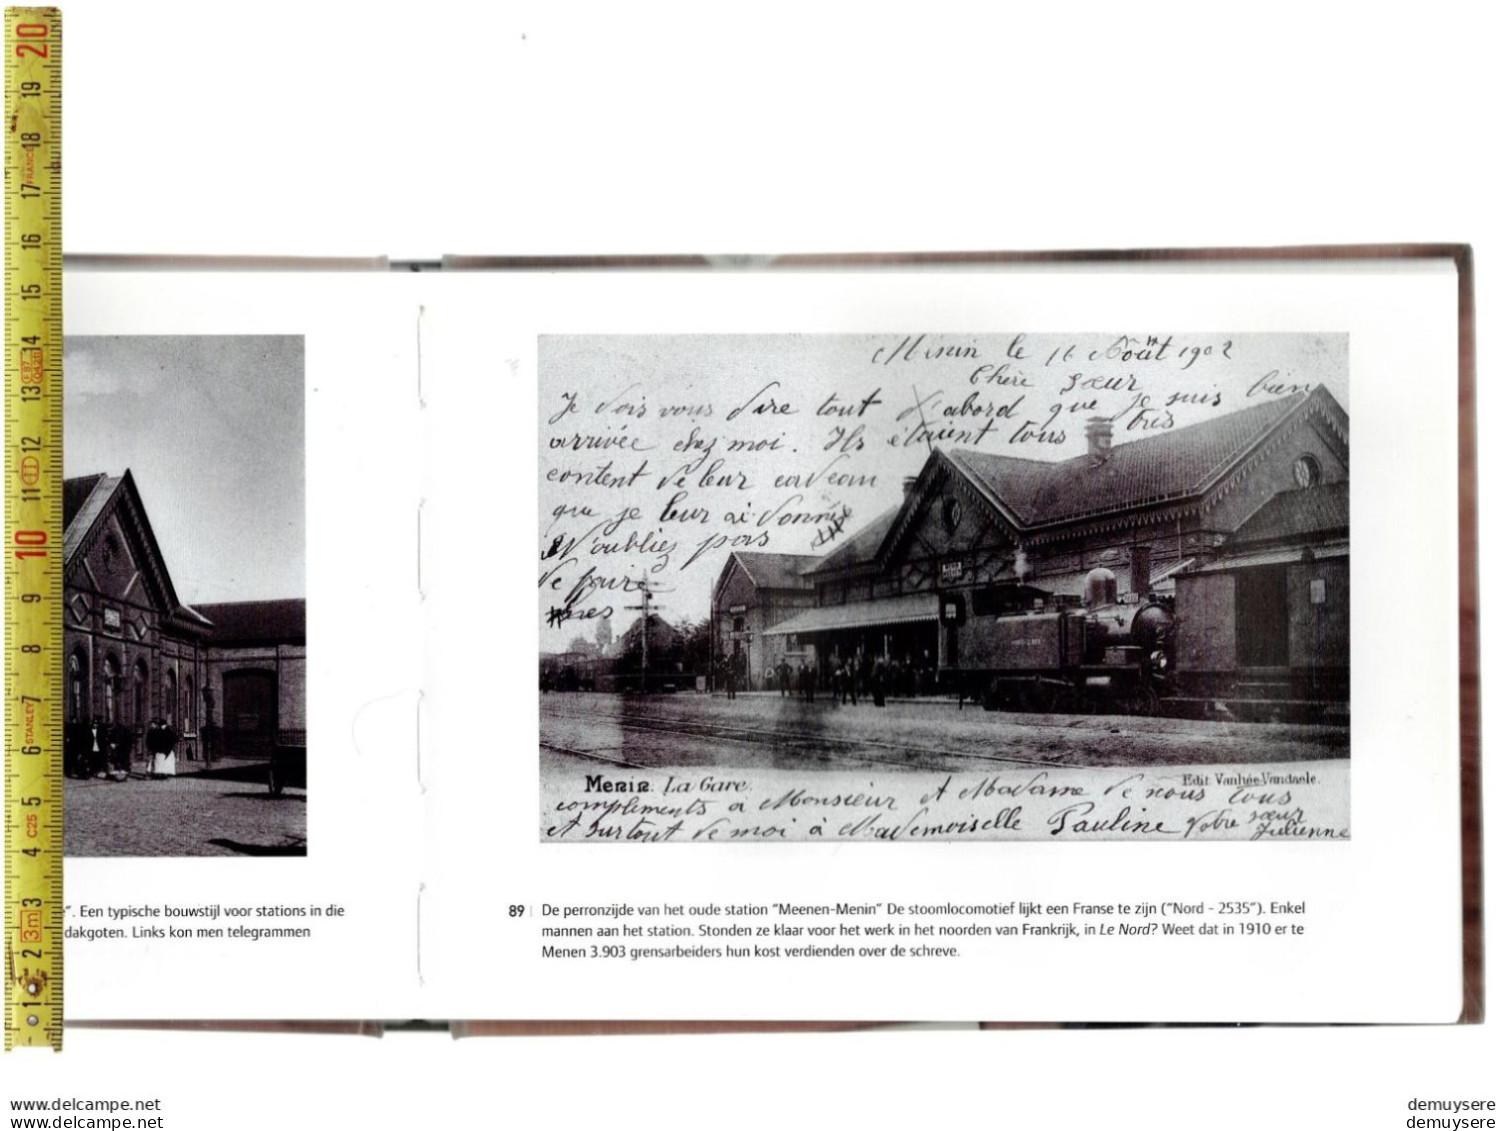 Menin le 16 Août 1902
Chère sœur
Je dois vous dire tout d'abord que je suis bien
arrivée chez moi. Ils étaient tous très
content de leur cadeau
que je leur ai donné
N'oubliez pas
de faire
mes
Menin. La Gare.
Edit Vanhée-Vandaele.
compliments à Monsieur et Madame de nous tous
et surtout de moi à Mademoiselle Pauline Votre sœur
Julienne
e". Een typische bouwstijl voor stations in die
dakgoten. Links kon men telegrammen
89 De perronzijde van het oude station "Meenen-Menin" De stoomlocomotief lijkt een Franse te zijn ("Nord - 2535"). Enkel
mannen aan het station. Stonden ze klaar voor het werk in het noorden van Frankrijk, in Le Nord? Weet dat in 1910 er te
Menen 3.903 grensarbeiders hun kost verdienden over de schreve.
20
19
18
FRANCE
17
16
15
14
13
12
11
10
9
8
7
STANLEY
6
5
C25
4
3
3m
2
1
www.delcampe.net
www.delcampe.net
demuysere
demuysere